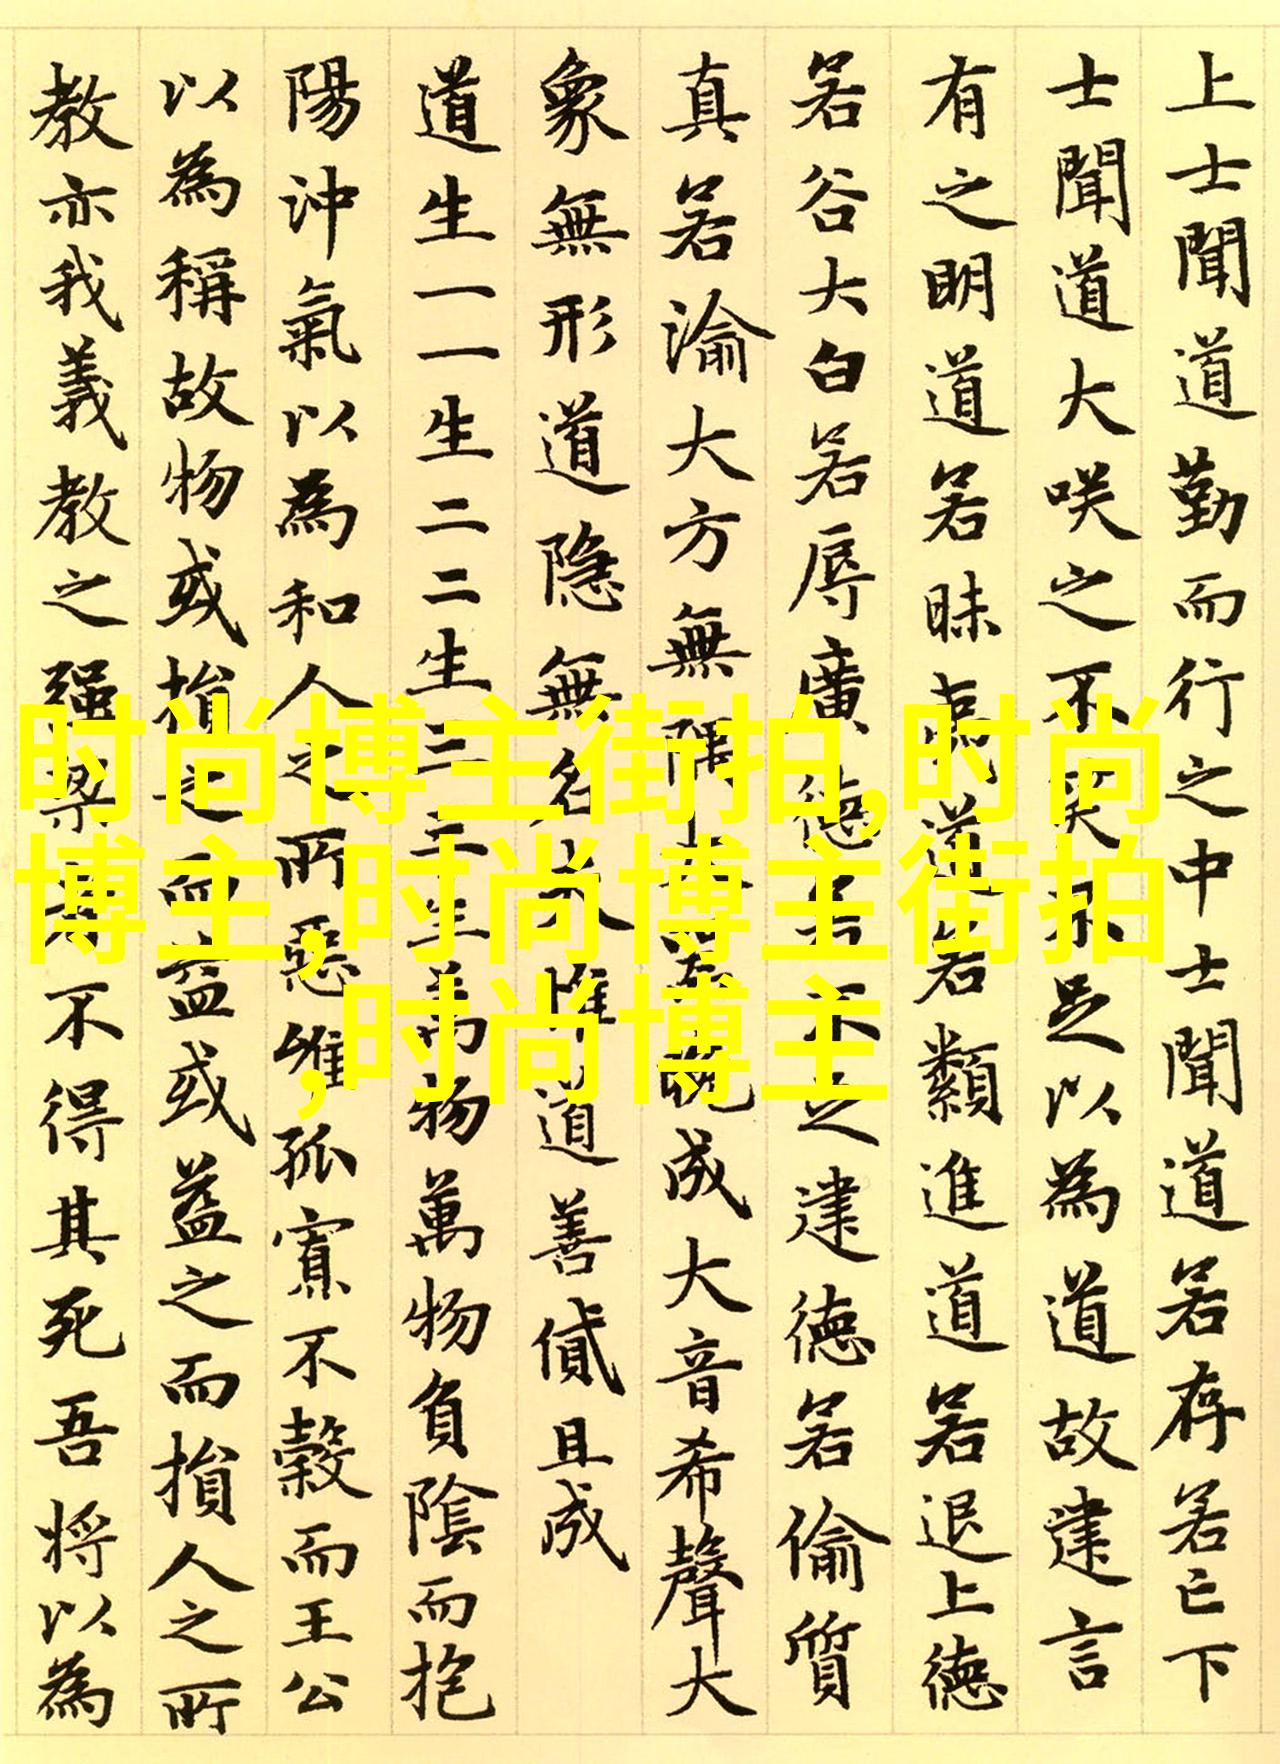 上士聞道勤而行之中士聞道若存若亡下
士聞道大咲之不笑不足以為道故建言
有之明道若昧夷道若類進道若退上德
若谷大白若辱廣德若不足建德若偷質
真若渝大方無隅大器晚成大音希聲大
象無形道隐無名夫惟道善貸且成
道生一一生二二生三三生萬物萬物負陰而抱
陽沖氣以為和人之所惡惟孤寡不穀而王公
以為稱故物或損之而益或益之而損人之所
教亦我義教之强梁者不得其死吾将以為
时尚博主街拍,时尚
博主,时尚博主街拍
,时尚博主